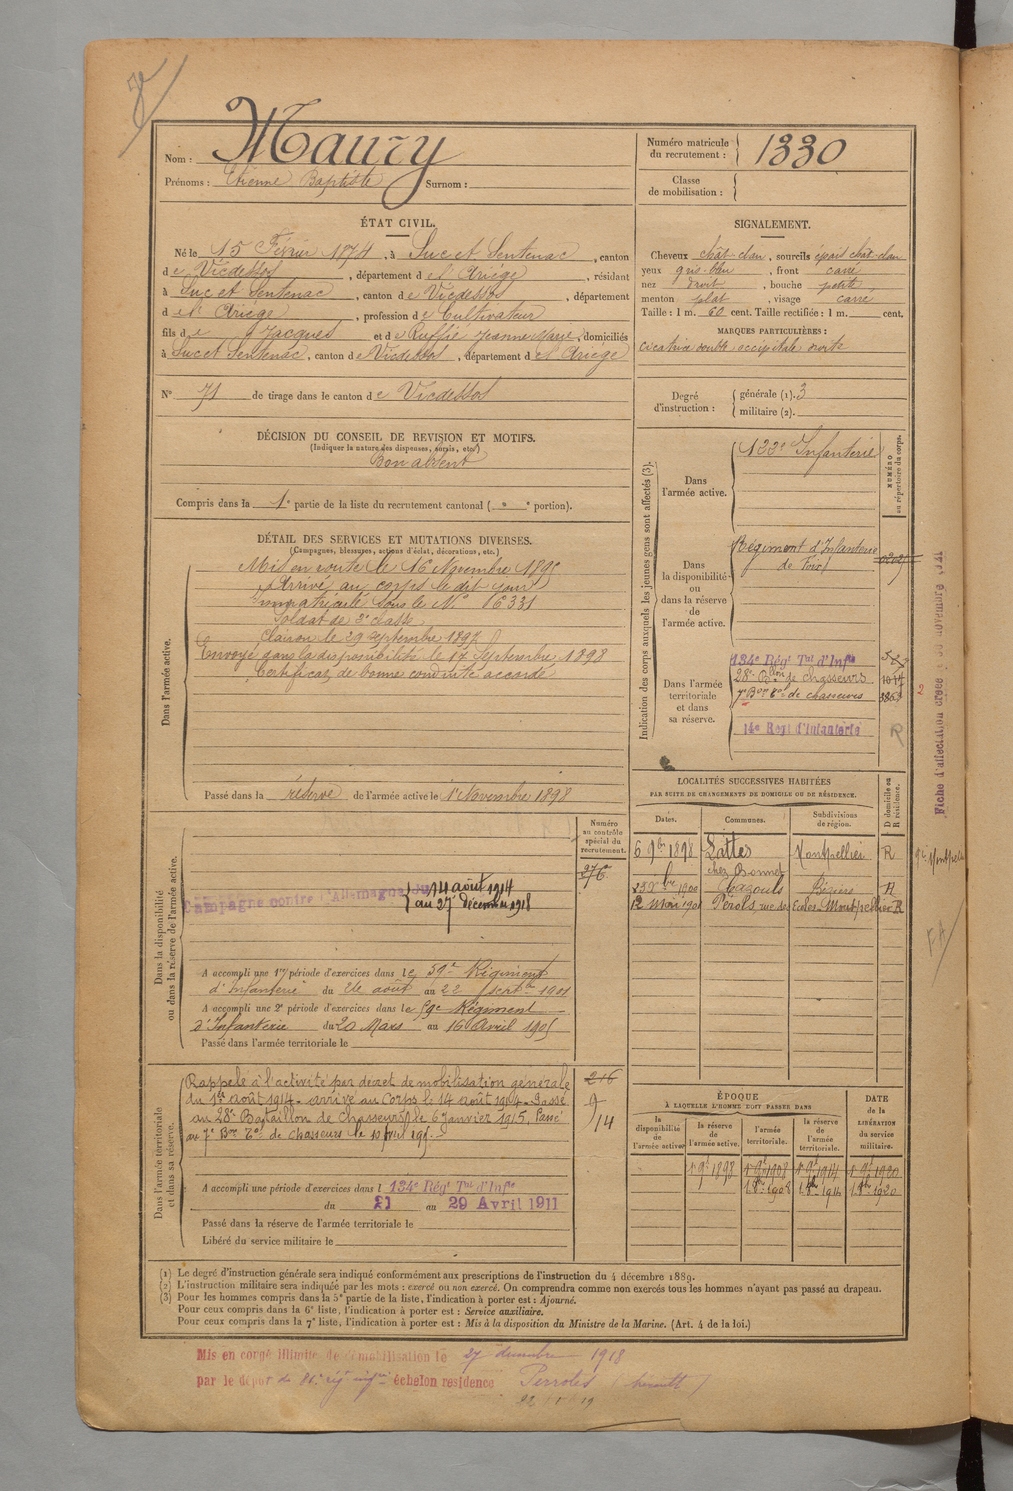 Nom : Maury
Prénoms : Etienne Baptiste Surnom :
Numéro matricule du recrutement : 1330
Classe de mobilisation :
ÉTAT CIVIL.
Né le 15 Février 1874, à Suc et Sentenac, canton
de Vicdessos, département de l'Ariège, résidant
à Suc et Sentenac, canton de Vicdessos, département
de l'Ariège, profession de Cultivateur
fils de Jacques et de Ruffié Jeanne Marie, domiciliés
à Suc et Sentenac, canton de Vicdessos, département de l'Ariège
N° 71 de tirage dans le canton de Vicdessos
SIGNALEMENT.
Cheveux chât-clair, sourcils épais chât-clair
yeux gris-bleu, front carré
nez droit, bouche petite
menton plat, visage carré
Taille : 1 m. 60 cent. Taille rectifiée : 1 m. cent.
MARQUES PARTICULIÈRES :
cicatrice double occipitale droite
Degré d'instruction : générale (1). 3
militaire (2).
DÉCISION DU CONSEIL DE REVISION ET MOTIFS.
(Indiquer la nature des dispenses, sursis, etc.)
Bon absent
Compris dans la 1e partie de la liste du recrutement cantonal ( " e portion).
DÉTAIL DES SERVICES ET MUTATIONS DIVERSES.
(Campagnes, blessures, actions d'éclat, décorations, etc.)
Dans l'armée active.
Mis en route le 16 Novembre 1895
Arrivé au corps le dit jour
Immatriculé sous le N° 6331
Soldat de 2e classe.
Clairon le 29 septembre 1897
Envoyé dans la disponibilité le 17 Septembre 1898
Certificat de bonne conduite accordé
Passé dans la réserve de l'armée active le 1er Novembre 1898
Indication des corps auxquels les jeunes gens sont affectés (3).
NUMÉRO au répertoire du corps.
Dans l'armée active.
122e Infanterie
Dans la disponibilité ou dans la réserve de l'armée active.
Régiment d'Infanterie
de Foix
Dans l'armée territoriale et dans sa réserve.
134e Régt Tal d'Infie
28e Bon de chasseurs
7e Bon Tal de chasseurs
14e Regt d'Infanterie
R
Fiche d'affectation créée
LOCALITÉS SUCCESSIVES HABITÉES
PAR SUITE DE CHANGEMENTS DE DOMICILE OU DE RÉSIDENCE.
Dates. Communes. Subdivisions de région. D domicile ou R résidence.
6 9bre 1898 Lattes Montpellier R
chez Bonnet
1900 Cazouls Béziers R
12 Mai 1901 Pérols, rue des Ecoles Montpellier R
Dans la disponibilité ou dans la réserve de l'armée active.
Numéro au contrôle spécial du recrutement.
276
Campagne contre l'Allemagne du 14 août 1914
au 27 décembre 1918
A accompli une 1re période d'exercices dans le 59e Régiment
d'Infanterie du 26 août au 22 septbre 1901
A accompli une 2e période d'exercices dans le 59e Régiment
d'Infanterie du 20 Mars au 16 Avril 1905
Passé dans l'armée territoriale le
Dans l'armée territoriale et dans sa réserve.
Rappelé à l'activité par décret de mobilisation générale
du 1er août 1914 - arrivé au Corps le 14 août 1914 - Passé
au 28e Bataillon de Chasseurs le 6 Janvier 1915. Passé
au 7e Bon Tal de chasseurs le 10 avril 1915.
A accompli une période d'exercices dans l 134e Régt Tal d'Infie
du 21 au 29 Avril 1911
Passé dans la réserve de l'armée territoriale le
Libéré du service militaire le
ÉPOQUE
À LAQUELLE L'HOMME DOIT PASSER DANS
la disponibilité de l'armée active. la réserve de l'armée active. l'armée territoriale. la réserve de l'armée territoriale. DATE de la LIBÉRATION du service militaire.
1er 9bre 1898 1er 9bre 1908 1er 9bre 1914 1er 9bre 1920
1 8bre 1908 1 8bre 1914 1 8bre 1920
(1) Le degré d'instruction générale sera indiqué conformément aux prescriptions de l'instruction du 4 décembre 1889.
(2) L'instruction militaire sera indiquée par les mots : exercé ou non exercé. On comprendra comme non exercés tous les hommes n'ayant pas passé au drapeau.
(3) Pour les hommes compris dans la 5e partie de la liste, l'indication à porter est : Ajourné.
Pour ceux compris dans la 6e liste, l'indication à porter est : Service auxiliaire.
Pour ceux compris dans la 7e liste, l'indication à porter est : Mis à la disposition du Ministre de la Marine. (Art. 4 de la loi.)
Mis en congé illimité de démobilisation le 27 décembre 1918
par le dépôt du 81e rég inf échelon residence Perrols (hérault)